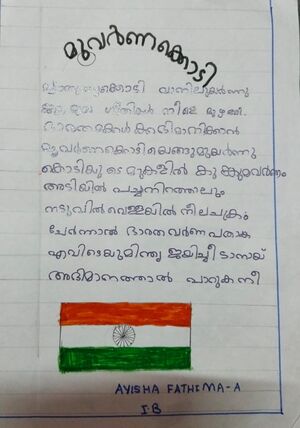 മൂവർണക്കൊടി
കൊടി വാനിലുയർന്നു
നീളെ മുഴങ്ങി
ഭാരതമക്കൾക്കഭിമാനിക്കാൻ
മൂവർണക്കൊടിയെങ്ങുമുയർന്നു
കൊടിയുടെ മുകളിൽ കുങ്കുമവർണം
അടിയിൽ പച്ചനിറത്തിലും
നടുവിൽ വെള്ളയിൽ നീലചക്രം
ചേർന്നാൽ ഭാരതവർണ പതാക
എവിടെയുമിന്ത്യ ജയിച്ചീടാനായ്
അഭിമാനത്താൽ പാറുക നീ
AYISHA FATHIMA-A
I-B